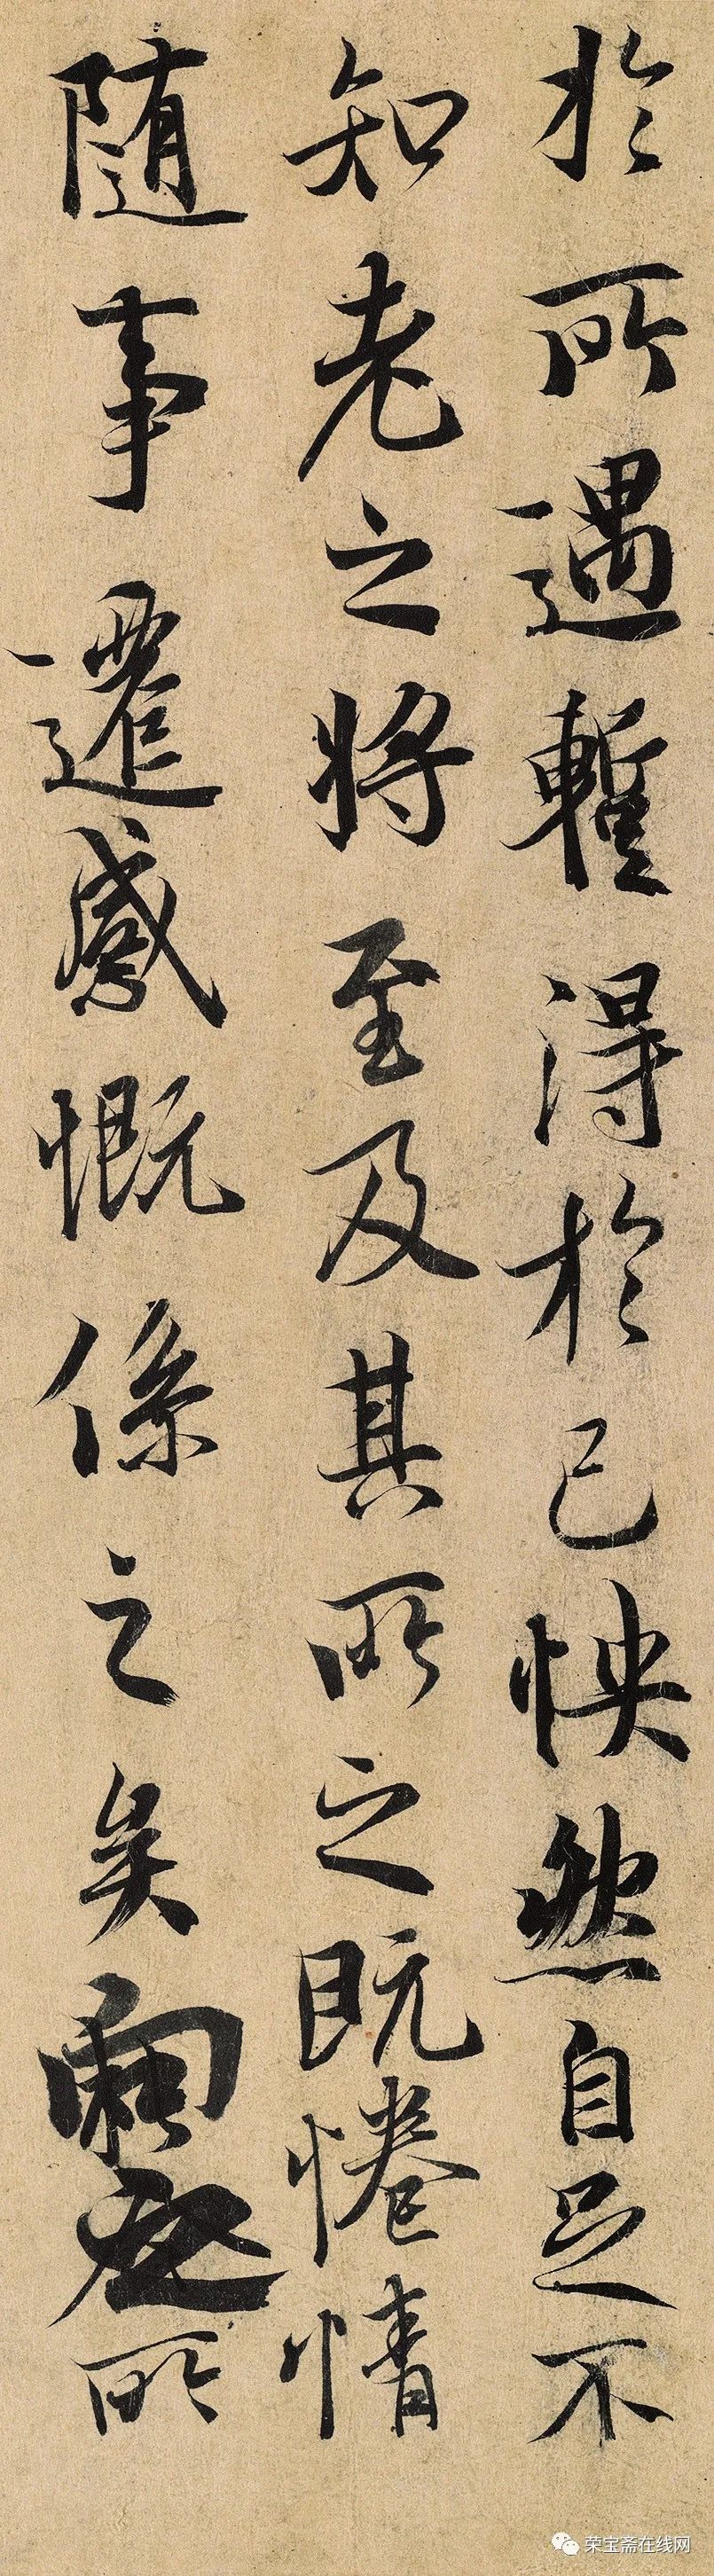 於所遇暫得於己怏然自足不
知老之將至及其所之既惓情
随事遷感慨係之矣向之所
荣宝斋在线网